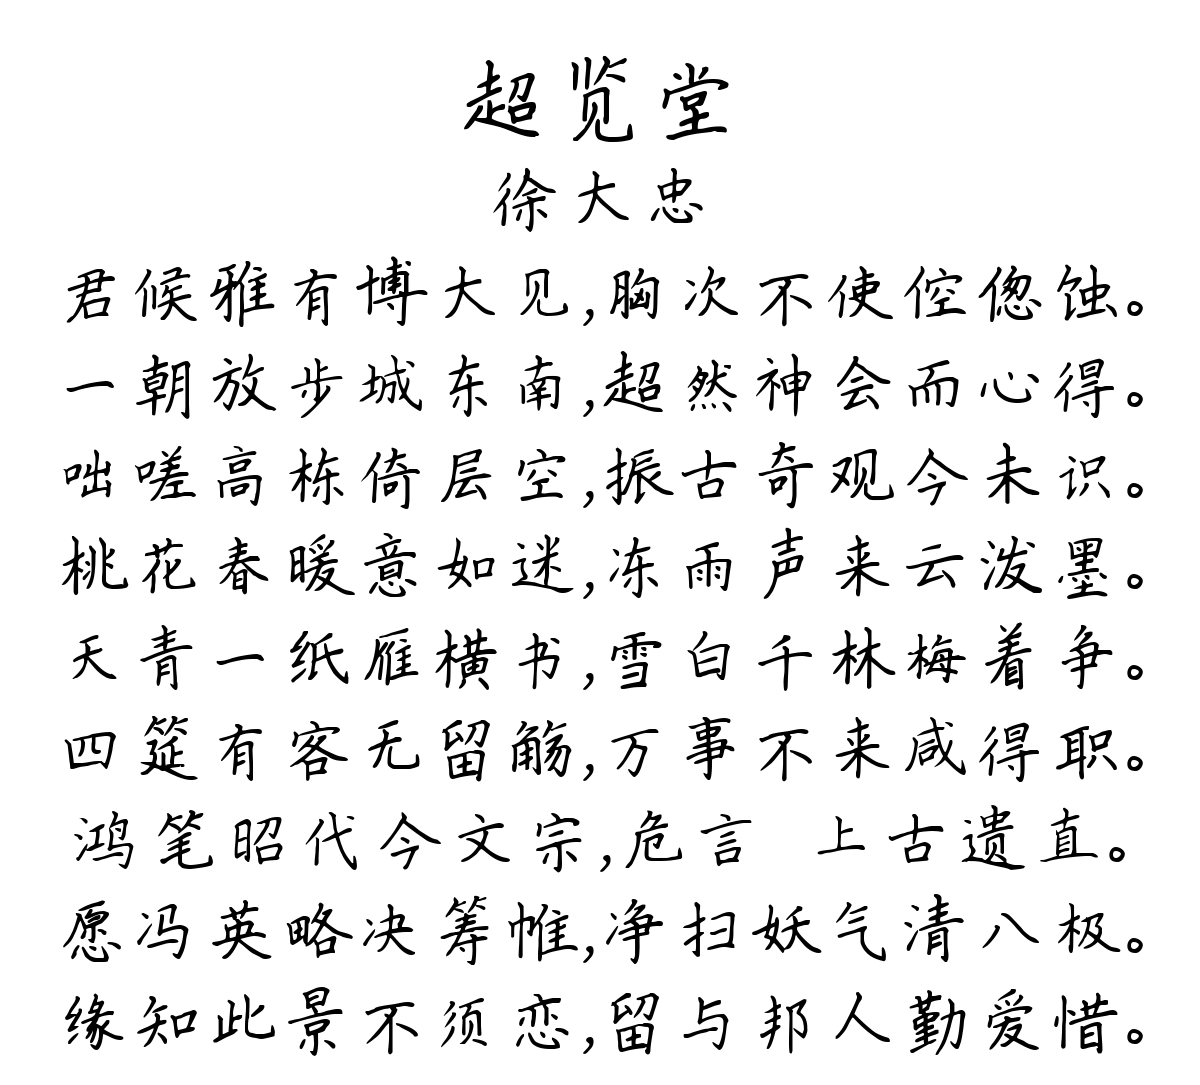 超览堂
徐大忠
君候雅有博大见,胸次不使倥偬蚀。
一朝放步城东南,超然神会而心得。
咄嗟高栋倚层空,振古奇观今未识。
桃花春暖意如迷,冻雨声来云泼墨。
天青一纸雁横书,雪白千林梅着争。
四筵有客无留觞,万事不来咸得职。
鸿笔昭代今文宗,危言 上古遗直。
愿冯英略决筹帷,净扫妖气清八极。
缘知此景不须恋,留与邦人勤爱惜。